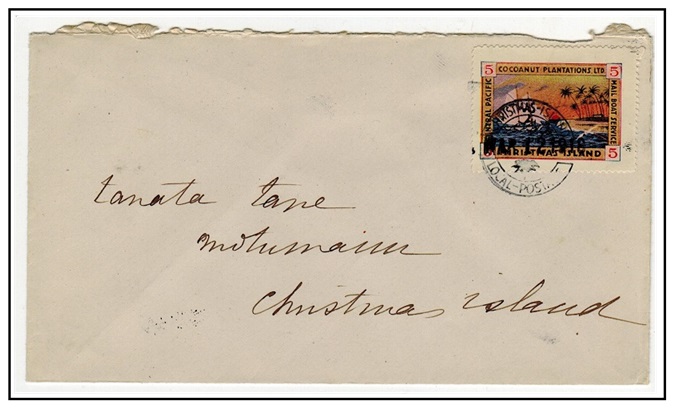 COCOANUT PLANTATIONS LTD
5 5
CENTRAL PACIFIC
MAIL BOAT SERVICE
5 5
CHRISTMAS ISLAND
CHRISTMAS-ISLAND
MAR 12
LOCAL-POST
tanata tane
motumaiun
Christmas island